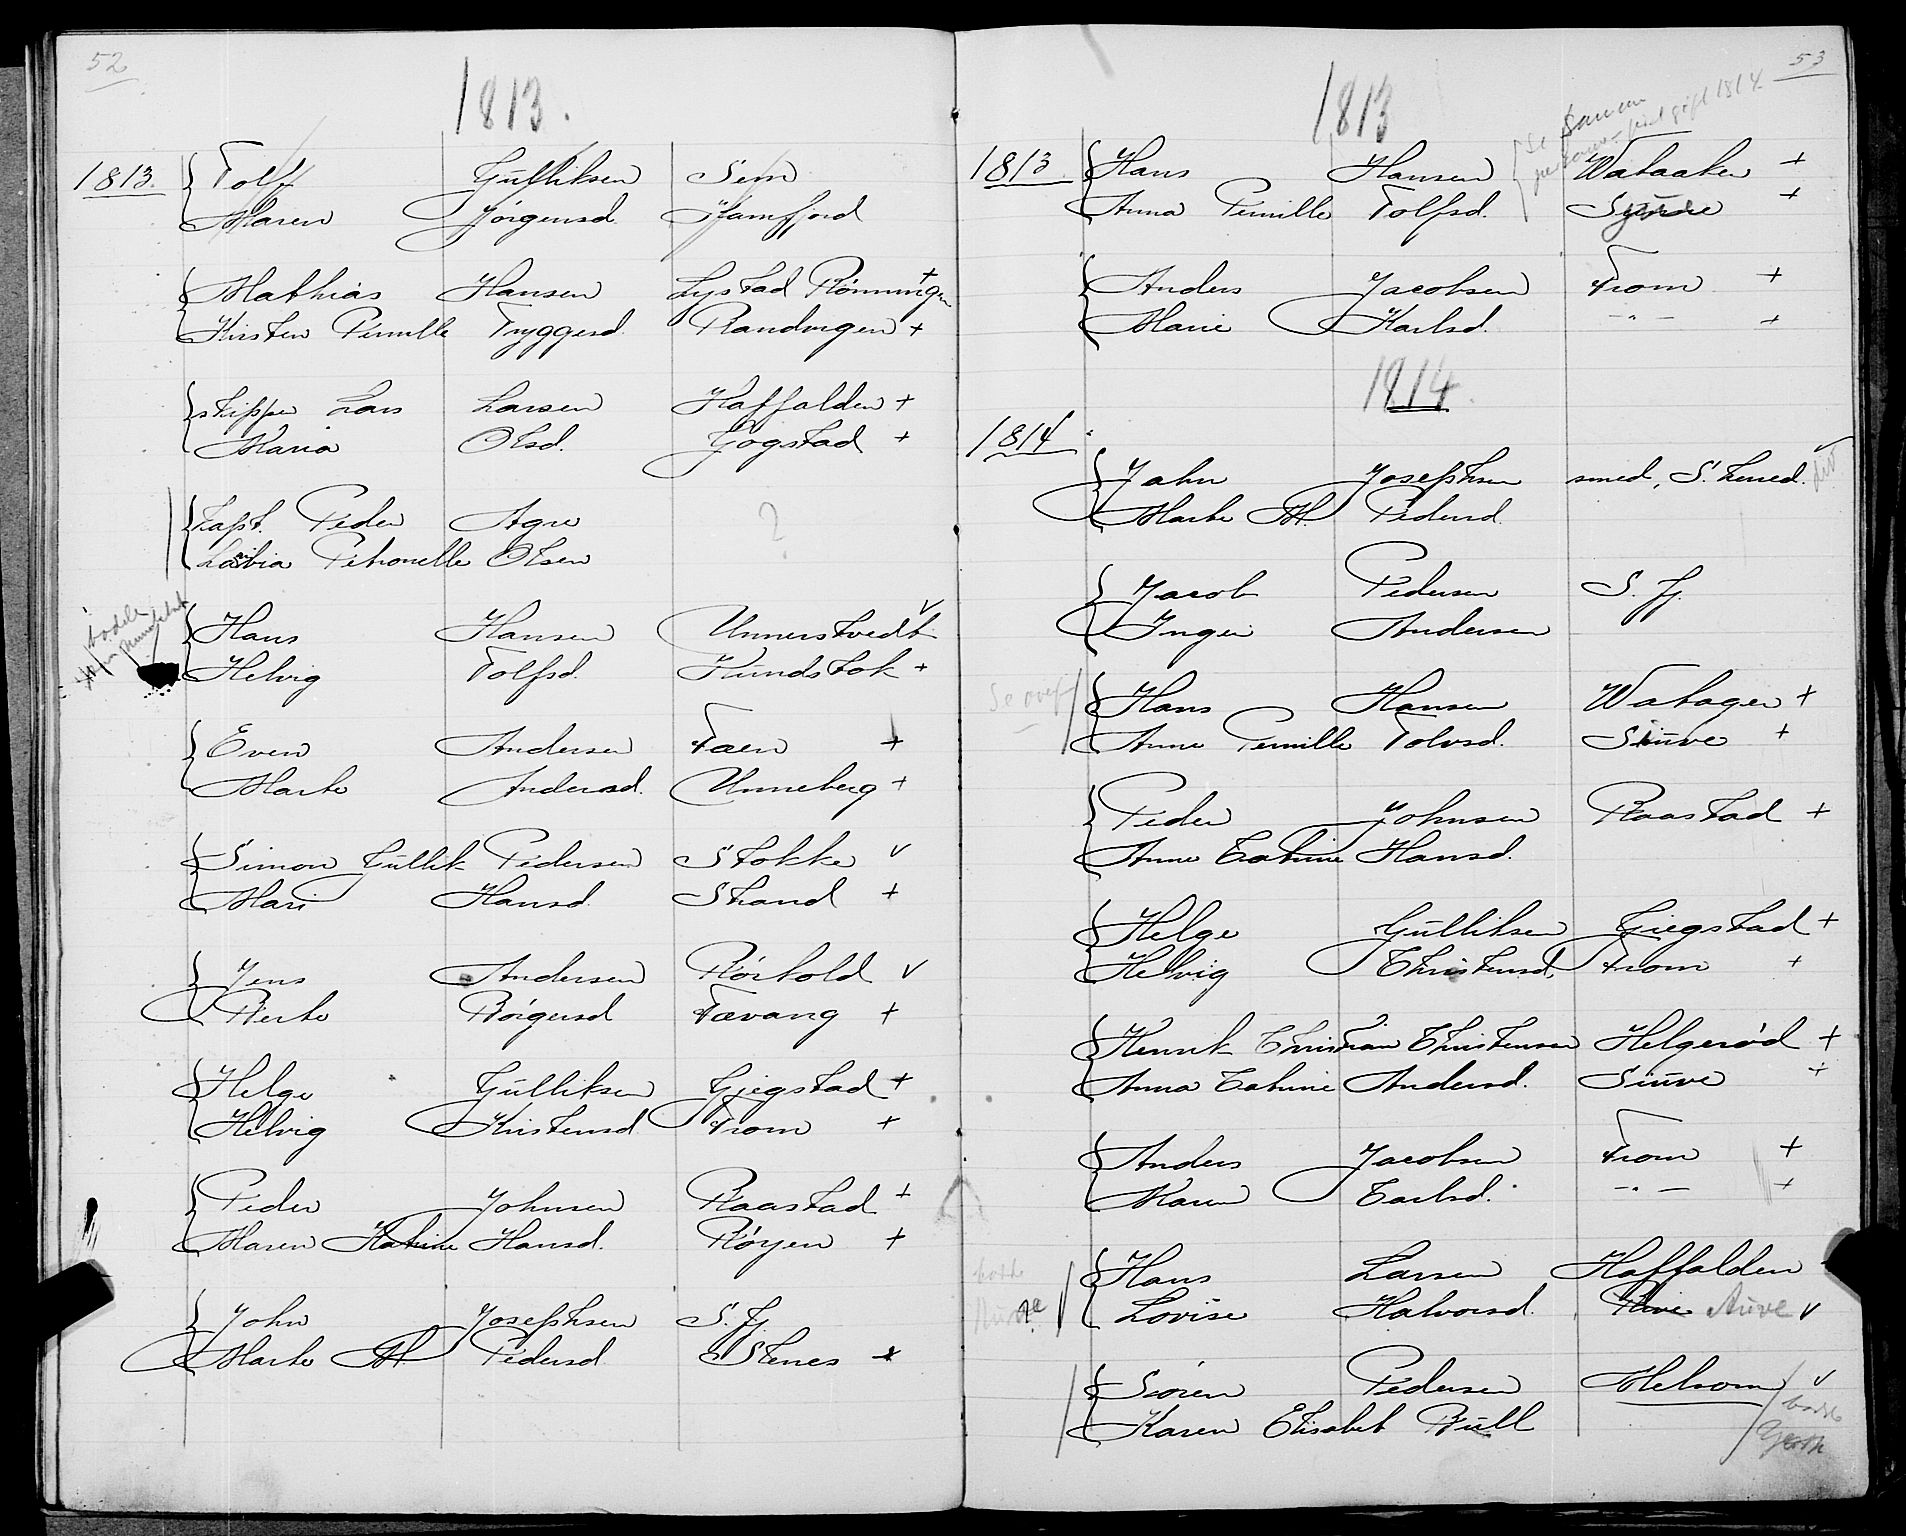 52
1813.
1813. Tolf Gulliksen Sem
Maren Jørgensd. Framfjord
Mathias Hansen Lystad Rönningen +
Kirsten Pernille Tryggesd. Randvigen +
skipper Lars Larsen Haffalden +
Maria Olsd. Gogstad +
Kapt. Peder Agre ?
Lovia Petronelle Olsen
bodde
Hans Hansen Unnerstvedt v
Helvig Tolfsd. Kundstok +
Even Andersen Faen +
Marte Andersd. Unneberg +
Simon Gullik Pedersen Stokke v
Mari Hansd. Strand +
Jens Andersen Rørkold v
Berte Börgersd Fævang +
Helge Gulliksen Gjegstad +
Helvig Kristensd From +
Peder Johnsen Raastad +
Maren Katrine Hansd. Röyen +
John Josephsen S. fj.
Marte M Pedersd. Stenes +
53
1813
Se samme
personer gift 1814.
1813 Hans Hansen Wataaker +
Anna Pernille Tolfsd. +
Anders Jacobsen From +
Marie Karlsd. - " - +
1814.
1814
John Josephsen smed, S. herred. v
Marte M Pedersd.
Jacob Pedersen S. fj.
Inger Andersen
Se over
Hans Hansen Watager +
Anne Pernille Tolvsd. Siuve +
Peder Johnsen Raastad +
Anne Catrine Hansd.
Helge Gulliksen Gjegstad +
Helvig Christensd. From +
Henrik Christian Christensen Helgerød +
Anna Catrine Andersd. Siuve +
Anders Jacobsen From +
Maren Carlsd. - " - +
bodde
Hans Larsen Haffalden
? Lovise Halvorsd. Auve v
Sören Pedersen Melsom v
Karen Elisabet Bull
bodde